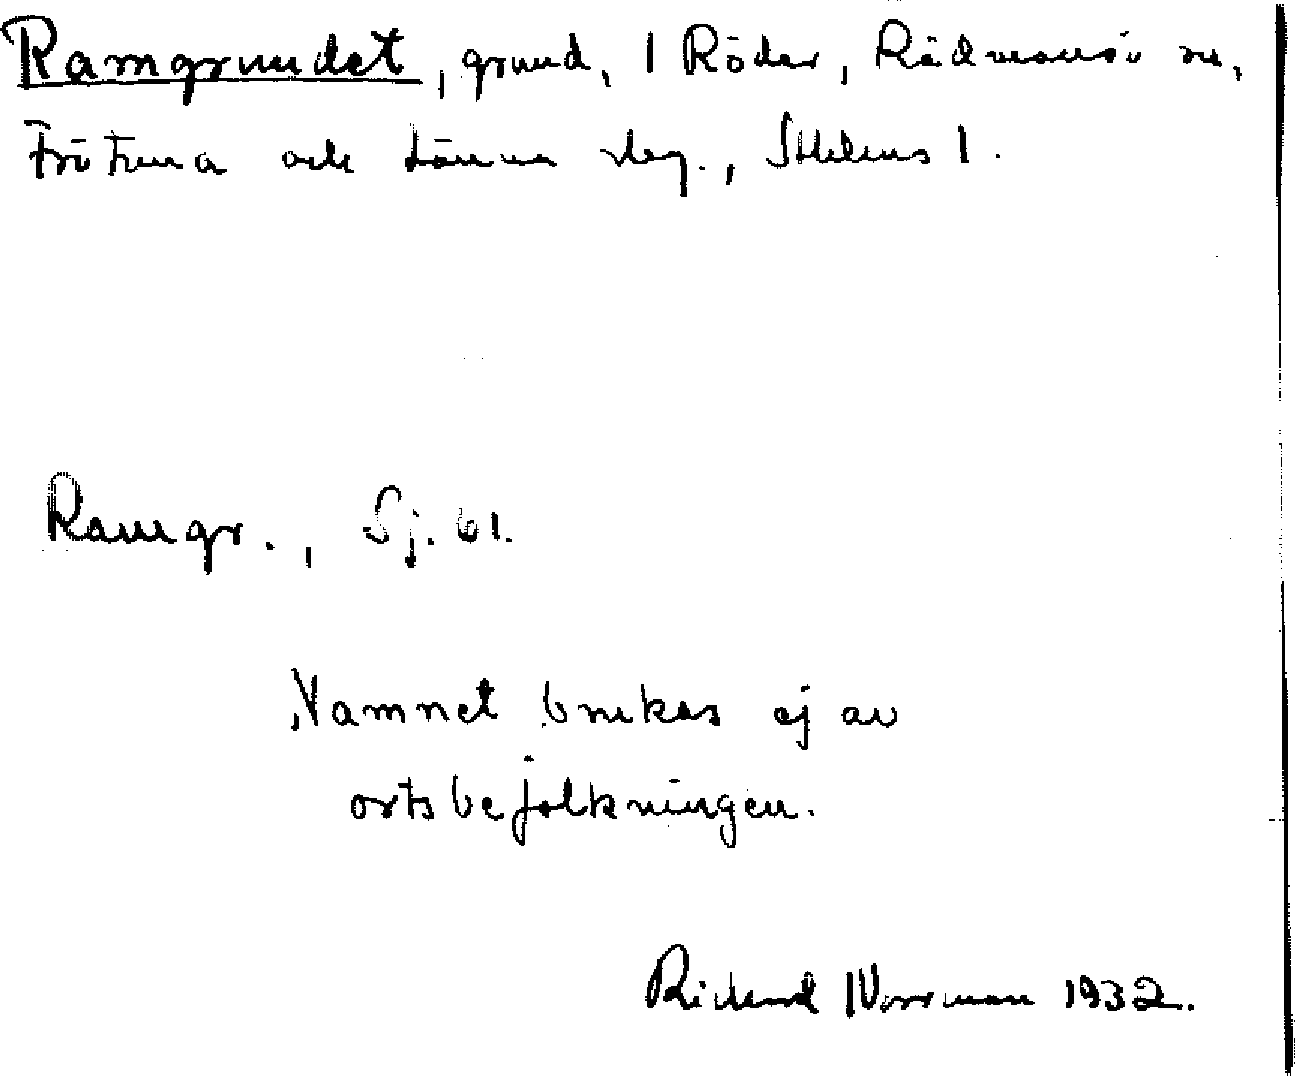 Ramgrundet, grund, 1 Röder, Rådmansö sn,
Frötuna och Länna skg., Sthlms l.
Ramgr., Sj. 61.
Namnet brukas ej av
ortsbefolkningen.
Rickard Norrman 1932.